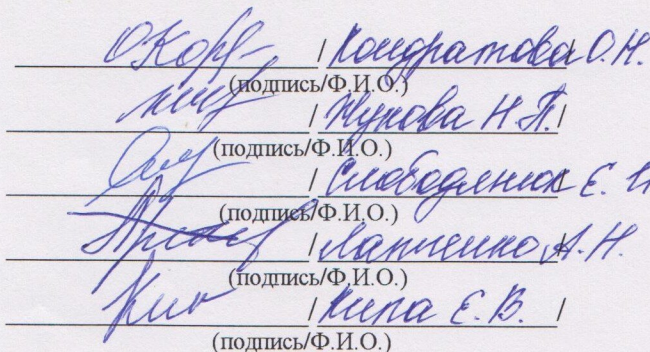 / Кондратова О.Н.
(подпись/Ф.И.О.)
/ Жукова Н.П. /
(подпись/Ф.И.О.)
/ Слободянюк Е.
(подпись/Ф.И.О.)
/ Лапченко А.Н.
(подпись/Ф.И.О.)
/ Кипа Е.В. /
(подпись/Ф.И.О.)